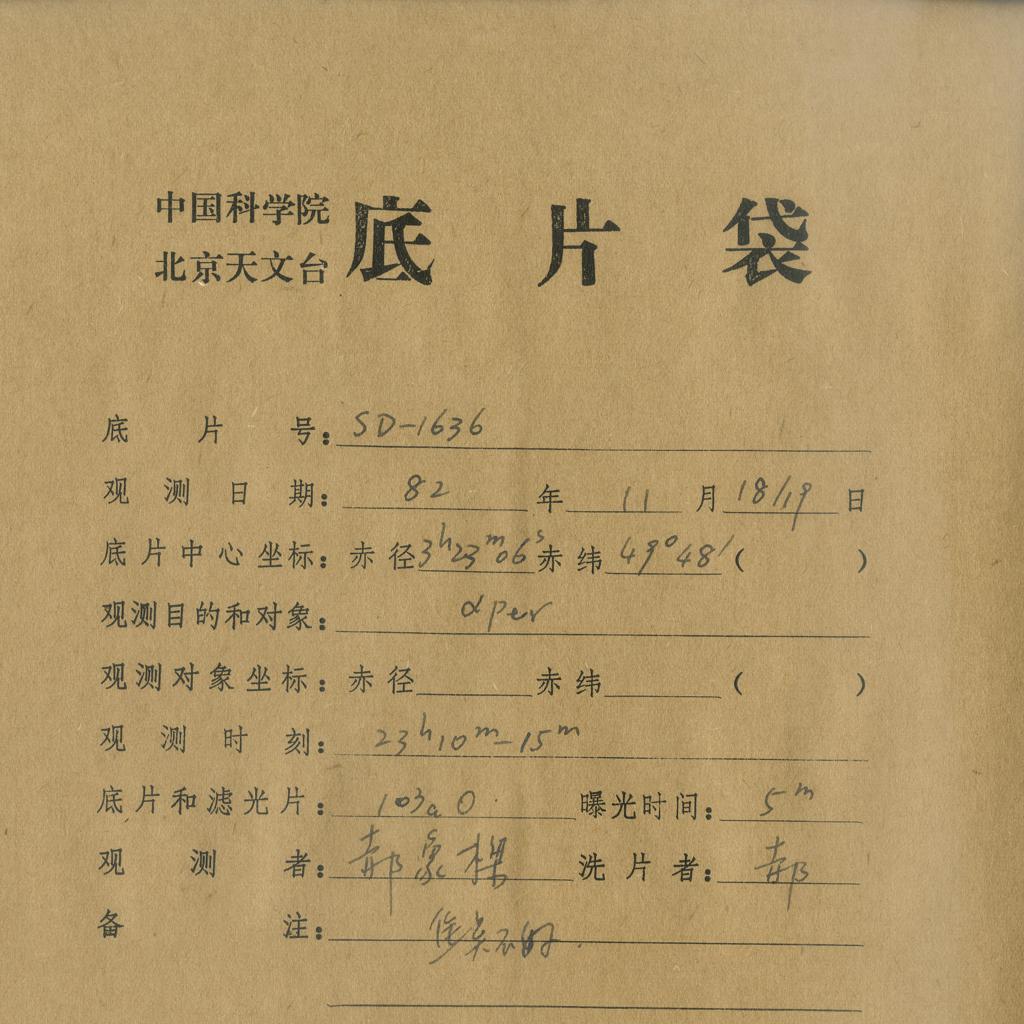 中国科学院
北京天文台
底片袋
底片号：SD-1636
观测日期：82年11月18/19日
底片中心坐标：赤径3h23m06s赤纬49°48′(      )
观测目的和对象：αper
观测对象坐标：赤径      赤纬      (      )
观测时刻：23h10m-15m
底片和滤光片：103aO 曝光时间：5m
观测者：郝象樑 洗片者：郝
备注：